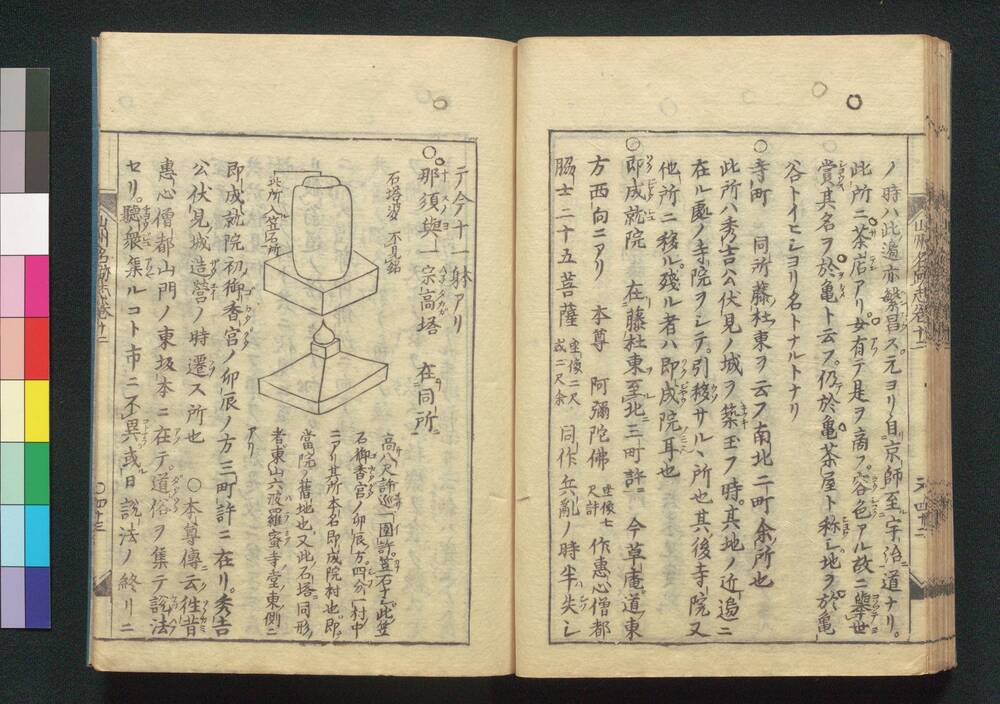 ノ時ハ此邉亦繁昌ス元ヨリ自京師至宇治道ナリ
此所ニ茶店アリ女有テ是ヲ商フ容色アル故ニ擧世
賞其名ヲ於亀ト云フ仍於亀茶屋ト称シ地ヲ於亀
谷トイヒシヨリ名トナルトナリ
○寺町 同所藤杜東ヲ云フ南北二町余所也
此所ハ秀吉公伏見ノ城ヲ築玉フ時其地ノ近邉ニ
在ル處ノ寺院ヲシテ引移サルヽ所也其後寺院又
他所ニ移ル殘ル者ハ即成院耳也
○即成就院 在藤杜東至北三町許ニ 今草庵道東
方西向ニアリ 本尊 阿彌陀佛 坐像七尺許 作惠心僧都
脇士二十五菩薩 坐像二尺或二尺余 同作兵亂ノ時半失シ
テ今十一躰アリ
○那須與一宗高塔 在同所
石塔婆 不見銘
此所入笠石所
高八尺許巡一圍許笠石于此笠
石御香宮ノ卯辰方四分一村中
ニアリ其所本名即成院村也即
當院ノ舊地也又此石塔同形ノ
者東山六波羅蜜寺堂東側ニ
アリ
即成就院初御香宮ノ卯辰ノ方三町許ニ在リ秀吉
公伏見城造營ノ時遷ス所也 ○本尊傳云往昔
惠心僧都山門ノ東坂本ニ在テ道俗ヲ集テ説法
セリ聽衆集ルコト市ニ不異或日説法ノ終リニ
山州名跡志卷十二
○四十三